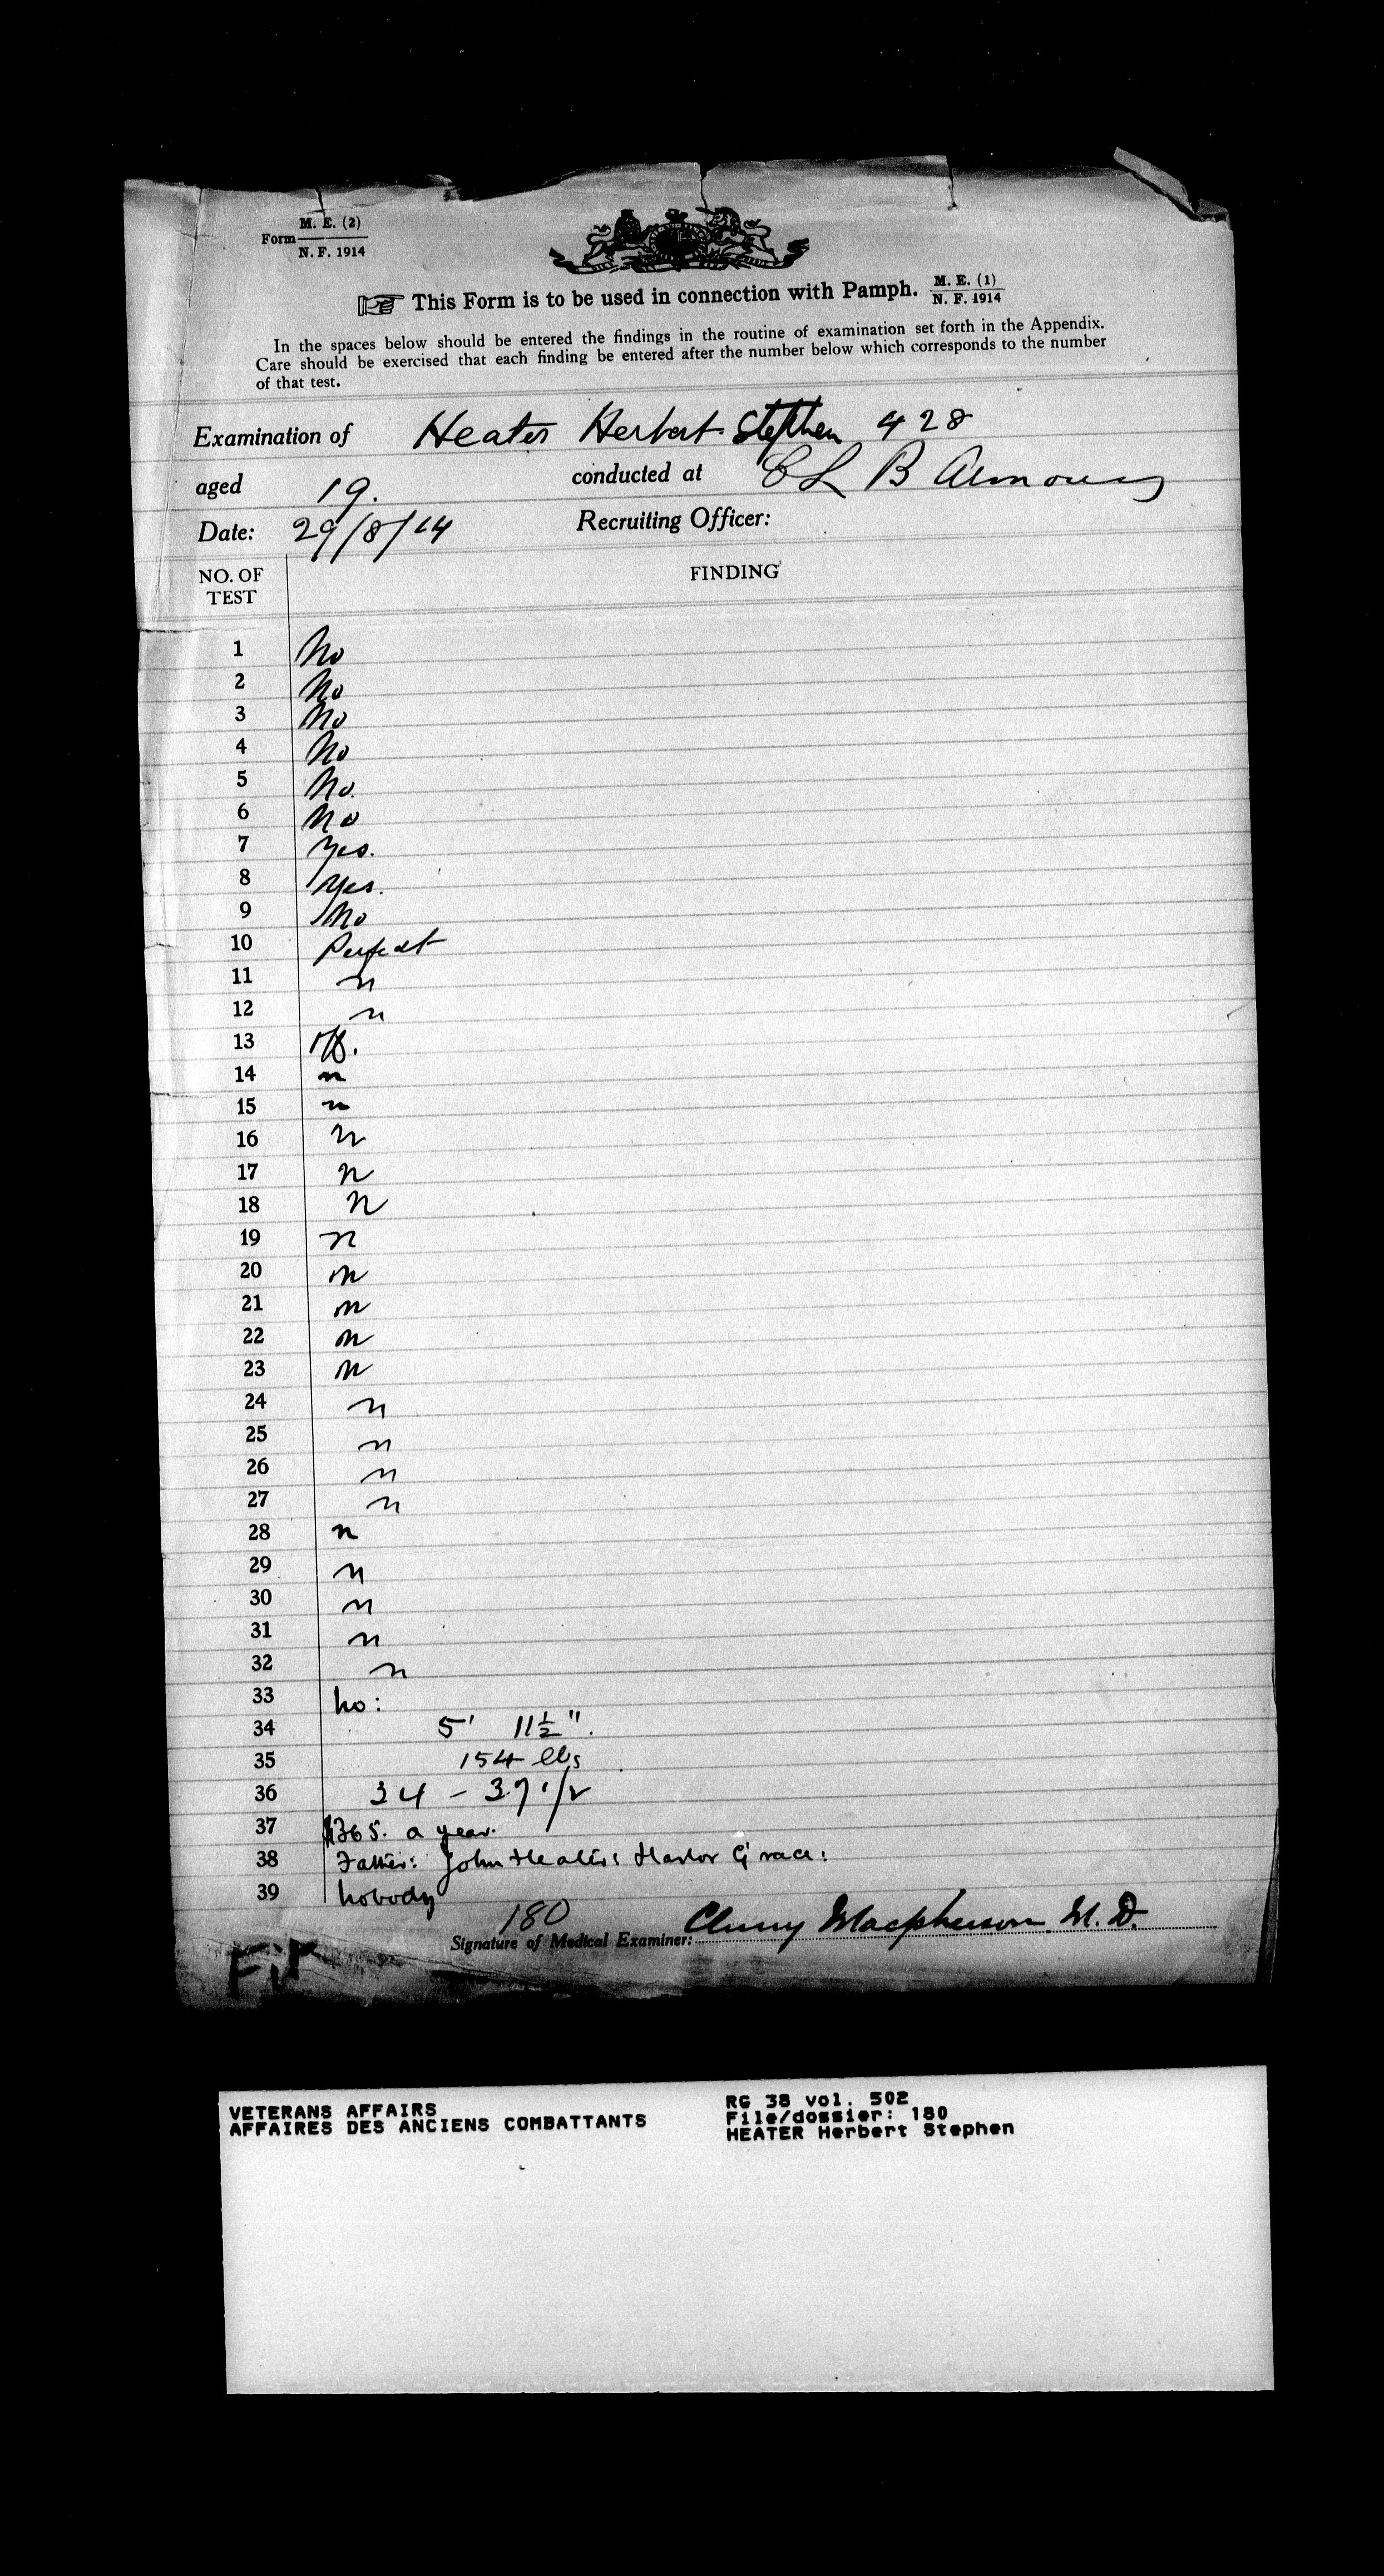 Form M. E. (2)
N. F. 1914
This Form is to be used in connection with Pamph. M. E. (1)
N. F. 1914
In the spaces below should be entered the findings in the routine of examination set forth in the Appendix.
Care should be exercised that each finding be entered after the number below which corresponds to the number
of that test.
Examination of Heater Herbert Stephen 428
aged 19. conducted at C L B Armoury
Date: 29/8/14 Recruiting Officer:
NO. OF TEST FINDING
1 No
2 No
3 No
4 No
5 No.
6 No
7 Yes.
8 Yes.
9 No
10 Perfect
11 n
12 n
13
14 n
15 n
16 n
17 n
18 n
19 n
20 n
21 n
22 n
23 n
24 n
25 n
26 n
27 n
28 n
29 n
30 n
31 n
32 n
33 no:
34 5' 11½".
35 154 lbs
36 34 - 37 1/2
37 $365. a year.
38 Father: John Heater: Harbor Grace:
39 nobody
180
Signature of Medical Examiner: Cluny Macpherson M. D.
Fit
VETERANS AFFAIRS
AFFAIRES DES ANCIENS COMBATTANTS
RG 38 vol. 502
File/dossier: 180
HEATER Herbert Stephen